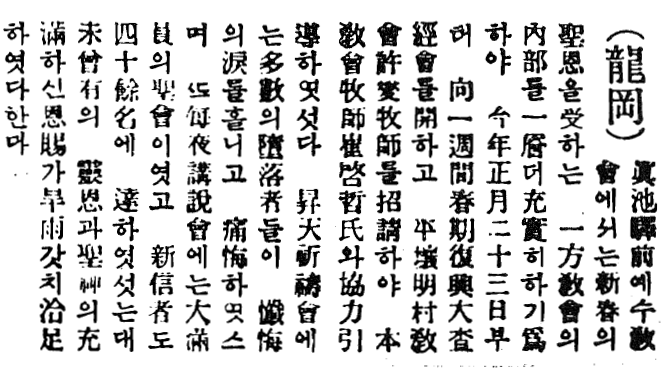 (龍岡)
眞池驛前예수敎
會에서는新春의
聖恩을受하는 一方敎會의
內部를一層더充實히하기爲
하야 今年正月二十三日부
터 向一週間春期復興大査
經會를開하고 平壤明村敎
會許燮牧師를招請하야 本
敎會牧師崔啓哲氏와協力引
導하엿섯다 昇大祈禱會에
는多數의墮落者들이 懺悔
의淚를흘니고 痛悔하엿스
며 또每夜講說會에는大滿
員의聖會이엿고 新信者도
四十餘名에 達하엿섯는대
未曾有의 靈恩과聖神의充
滿하신恩賜가旱雨갓치洽足
하엿다한다